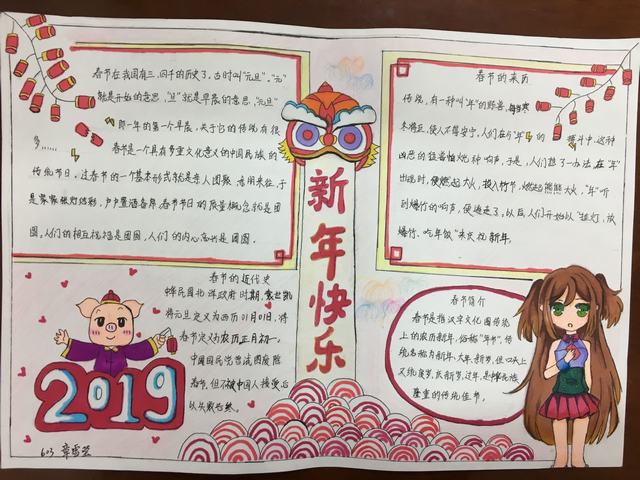 春节在我国有三、四千的历史了，古时叫"元旦"。"元"
就是开始的意思，"旦"就是早晨的意思，"元旦"
即一年的第一个早晨，关于它的传说有很
多……
春节是一个具有多重文化意义的中国民族的
传统节日，过春节的一个基本形式就是亲人团聚
是家家张灯结彩，户户置酒备席，春节节日的质量概念就是团
圆。人们的相互祝福是团圆，人们的内心意兴是团圆。
新年快乐
春节的来历
传说，有一种叫"年"的野兽，每到寒
冬将至，使人不得安宁，人们在与"年"的 搏斗中，这种
凶恶的怪兽怕火，怕种响声，于是，人们想了一办法，在"年"
出现时，便燃起大火，投入竹节，燃起熊熊大火，"年"听
到爆竹的响声，便逃走了，以后人们开始以"挂灯、放
爆竹、吃年饭"来庆祝新年。
春节的近代史
中华民国北洋政府时期，袁世凯
将元旦定义为西历01月01日，将
春节定义为农历正月初一，
中国国民党曾试图废除
春节，但不被中国人接受后
以失败告终。
春节简介
春节是指汉字文化圈传统
上的农历新年，俗称"年节"，传
统名称为新年、大年、新岁，但口头上
又称度岁、庆新岁、过年，是中华民族
隆重的传统佳节。
2019
603